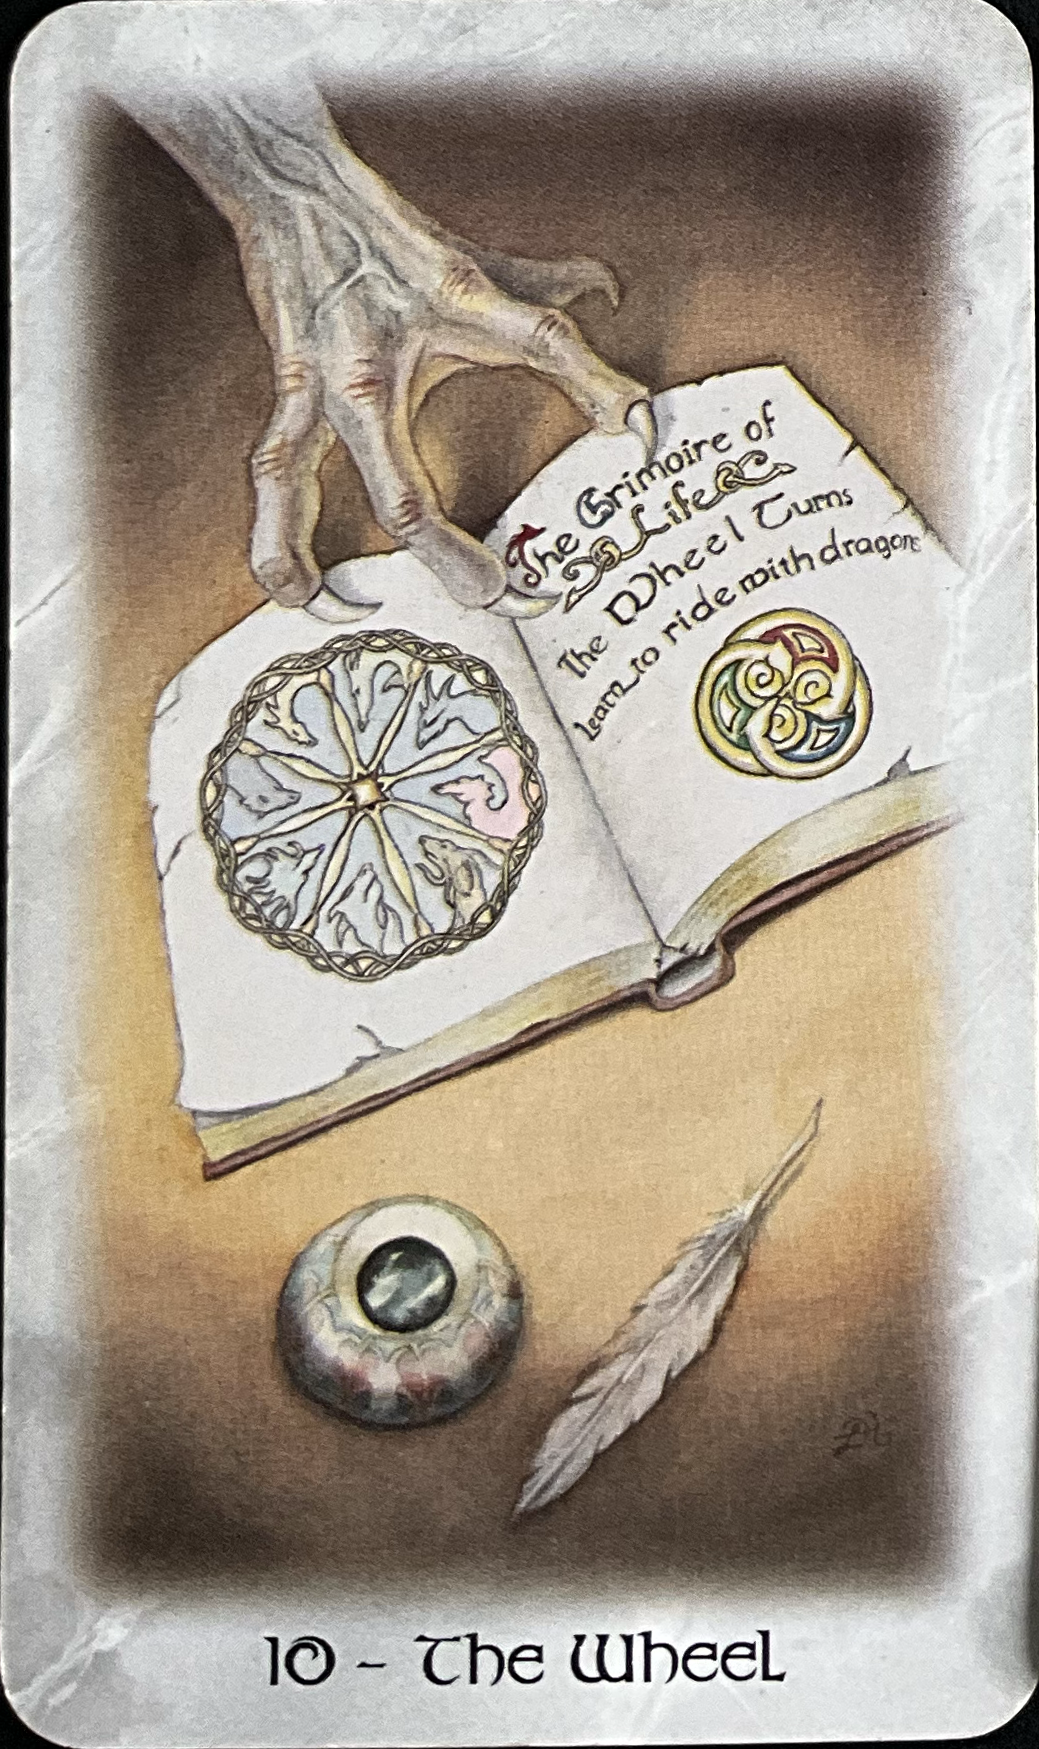 The Grimoire of
Life
The Wheel Turns
learn to ride with dragons
10 - The Wheel